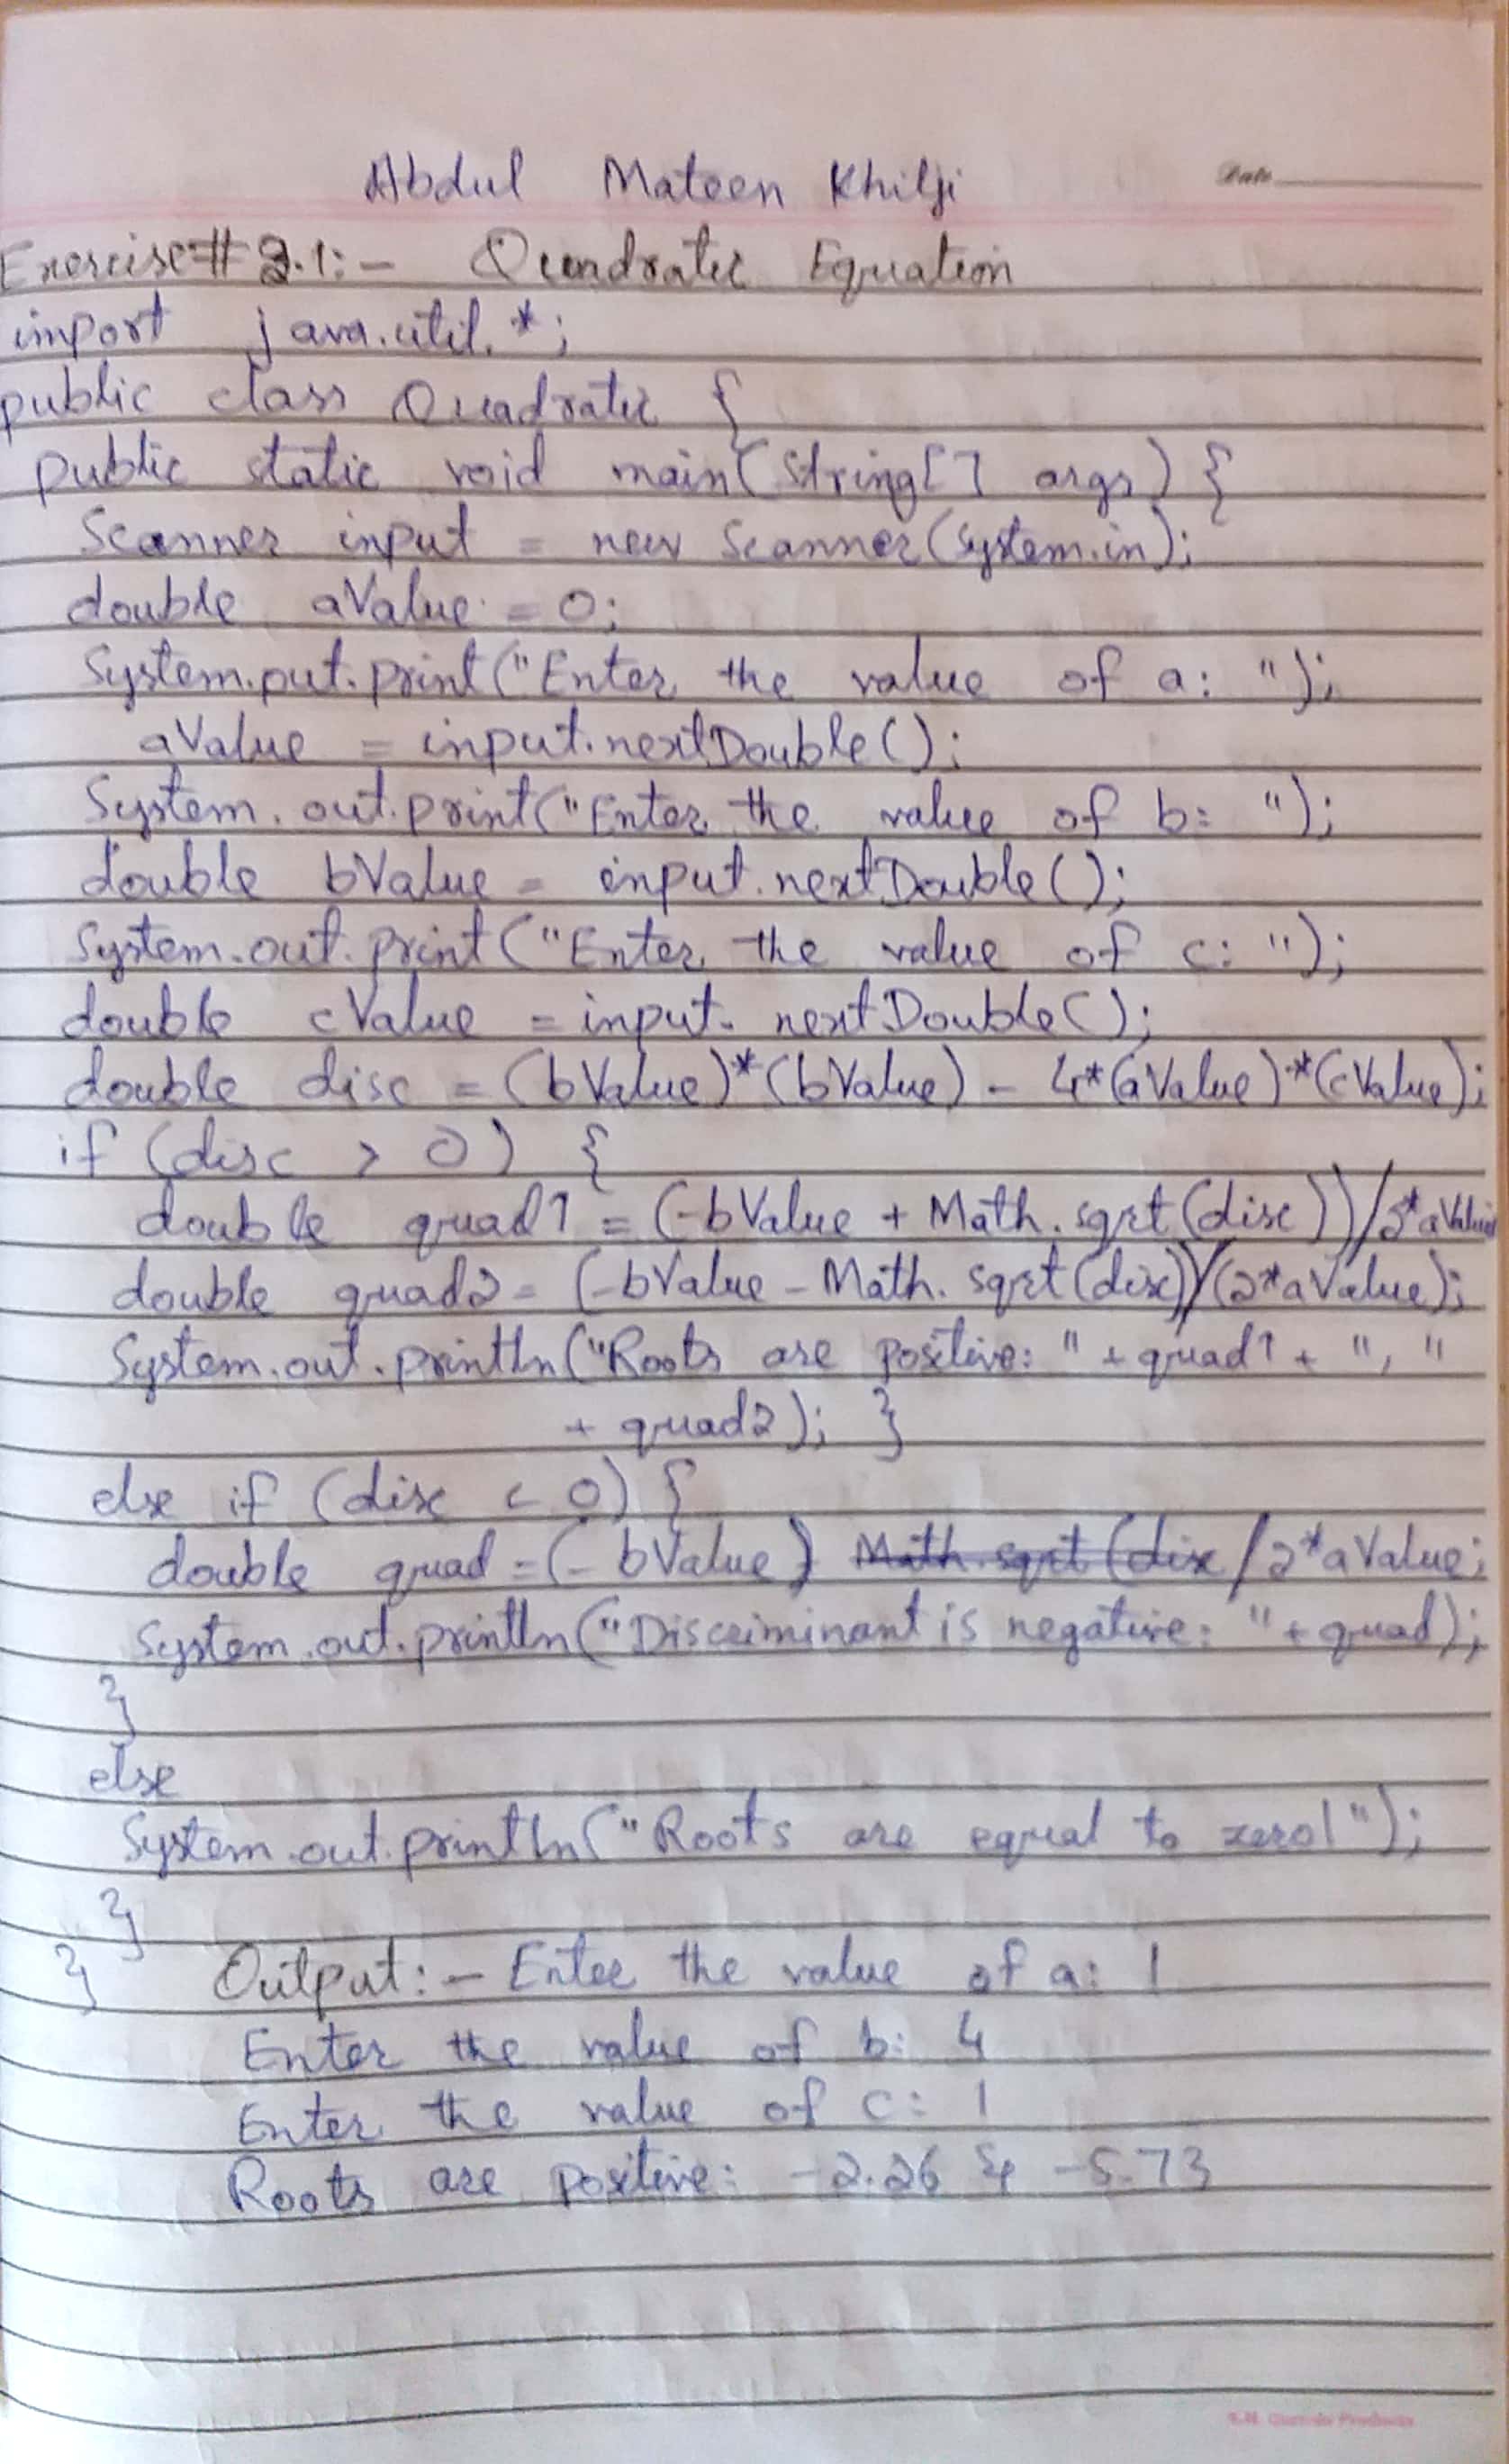 Abdul Mateen Khilji
Date
Exercise# 3.1:- Quadratic Equation
import java.util.*;
public class Quadratic {
public static void main(String[] args) {
Scanner input = new Scanner(System.in);
double aValue = 0;
System.out.print("Enter the value of a: ");
aValue = input.nextDouble();
System.out.print("Enter the value of b: ");
double bValue = input.nextDouble();
System.out.print("Enter the value of c: ");
double cValue = input.nextDouble();
double disc = (bValue)*(bValue) - 4*(aValue)*(cValue);
if (disc > 0) {
double quad1 = (-bValue + Math.sqrt(disc))/2*aValue
double quad2 = (-bValue - Math.sqrt(disc))/(2*aValue);
System.out.println("Roots are positive: " + quad1 + ", "
+ quad2); }
else if (disc < 0) {
double quad = (-bValue) Math.sqrt(disc/2*aValue;
System.out.println("Discriminant is negative: " + quad);
}
else
System.out.println("Roots are equal to zero!");
}
} Output:- Enter the value of a: 1
Enter the value of b: 4
Enter the value of c: 1
Roots are positive: -2.26 & -5.73